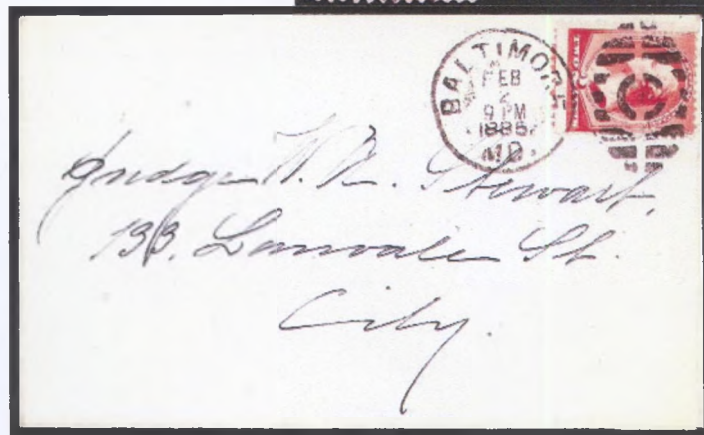 BALTIMORE
FEB
2
9 PM
1885
MD.
Judge W. A. Stewart,
133. Lanvale St.
City.